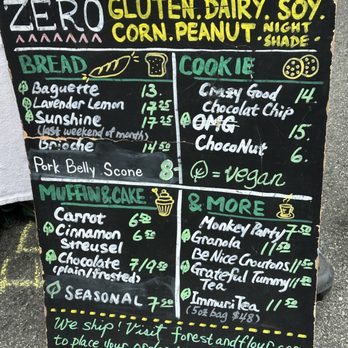 ZERO GLUTEN. DAIRY. SOY.
CORN. PEANUT. NIGHT
SHADE.
BREAD
Baguette 13.
Lavender Lemon 17.25
Sunshine 17.25
(last weekend of month)
Brioche 14.50
Pork Belly Scone 8
COOKIE
Crazy Good
Chocolat Chip
OMG 15.
ChocoNut 6.
= vegan
MUFFIN & CAKE
Carrot 6.50
Cinnamon 6.50
Streusel
Chocolate 7/9.50
(plain/frosted)
SEASONAL 7.20
& MORE
Monkey Party 7.50
Granola 11.50
Be Nice Croutons 11.50
Grateful Tummy 11.50
Tea
ImmuniTea 11.50
(5oz bag $48)
We ship! Visit forestandflour.co
to place your